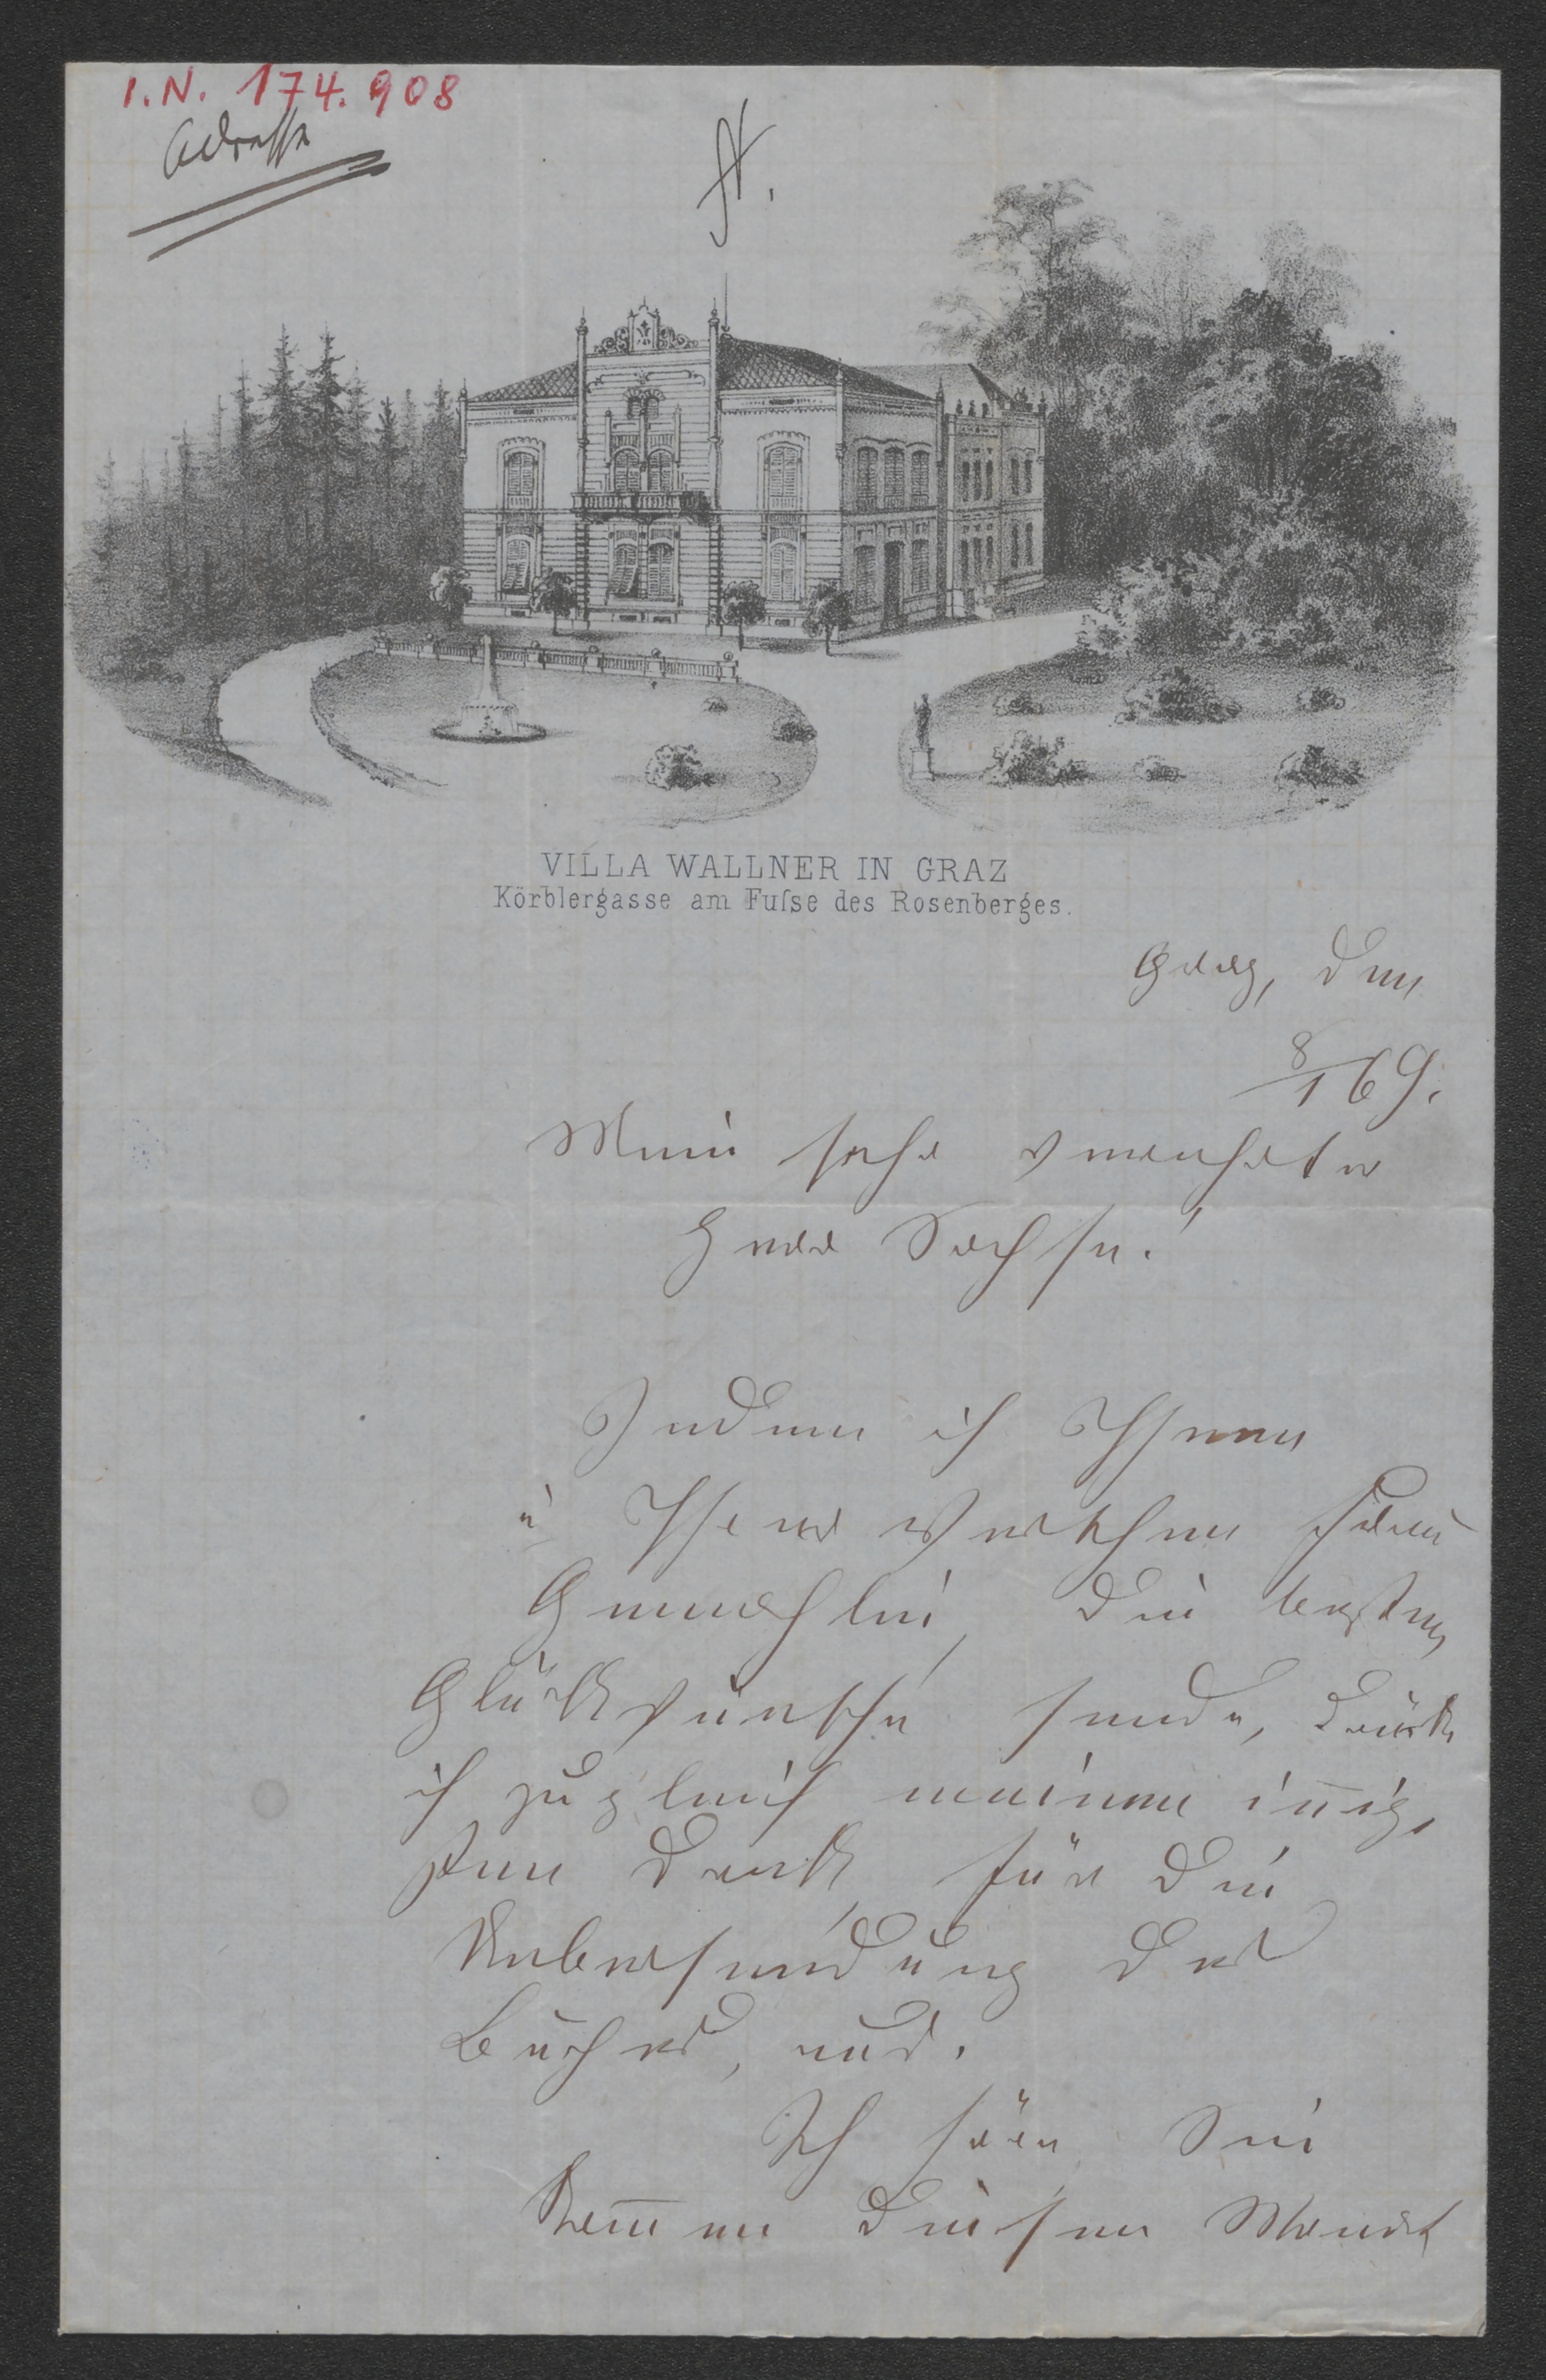 I.N. 174.908
Adresse
VILLA WALLNER IN GRAZ
Körblergasse am Fuſse des Rosenberges.
Graz, den
8/1 69.
Mein sehr verehrter
Herr Sachse!
Indem ich Ihnen
u Ihrer werthen Frau
Gemahlin, die besten
Glückwünsche sende, drücke
ich zugleich meinen innig„
sten Dank, für die
Uebersendung des
Buches, aus.
Ich höre, Sie
kommen diesen Monat